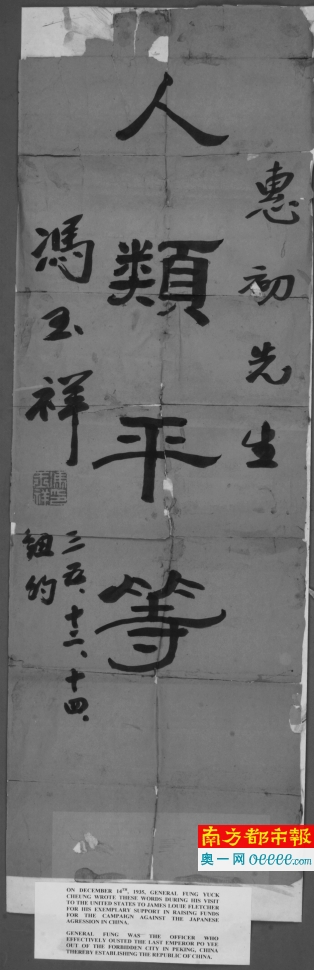 惠初先生
人類平等
馮玉祥
三五、十二、十四、
紐約
南方都市報
奥一网 oeeee.com
ON DECEMBER 14TH, 1935, GENERAL FUNG YUCK
CHEUNG WROTE THESE WORDS DURING HIS VISIT
TO THE UNITED STATES TO JAMES LOUIE FLETCHER
FOR HIS EXEMPLARY SUPPORT IN RAISING FUNDS
FOR THE CAMPAIGN AGAINST THE JAPANESE
AGRESSION IN CHINA.
GENERAL FUNG WAS THE OFFICER WHO
EFFECTIVELY OUSTED THE LAST EMPEROR PO YEE
OUT OF THE FORBIDDEN CITY IN PEKING, CHINA
THEREBY ESTABLISHING THE REPUBLIC OF CHINA.